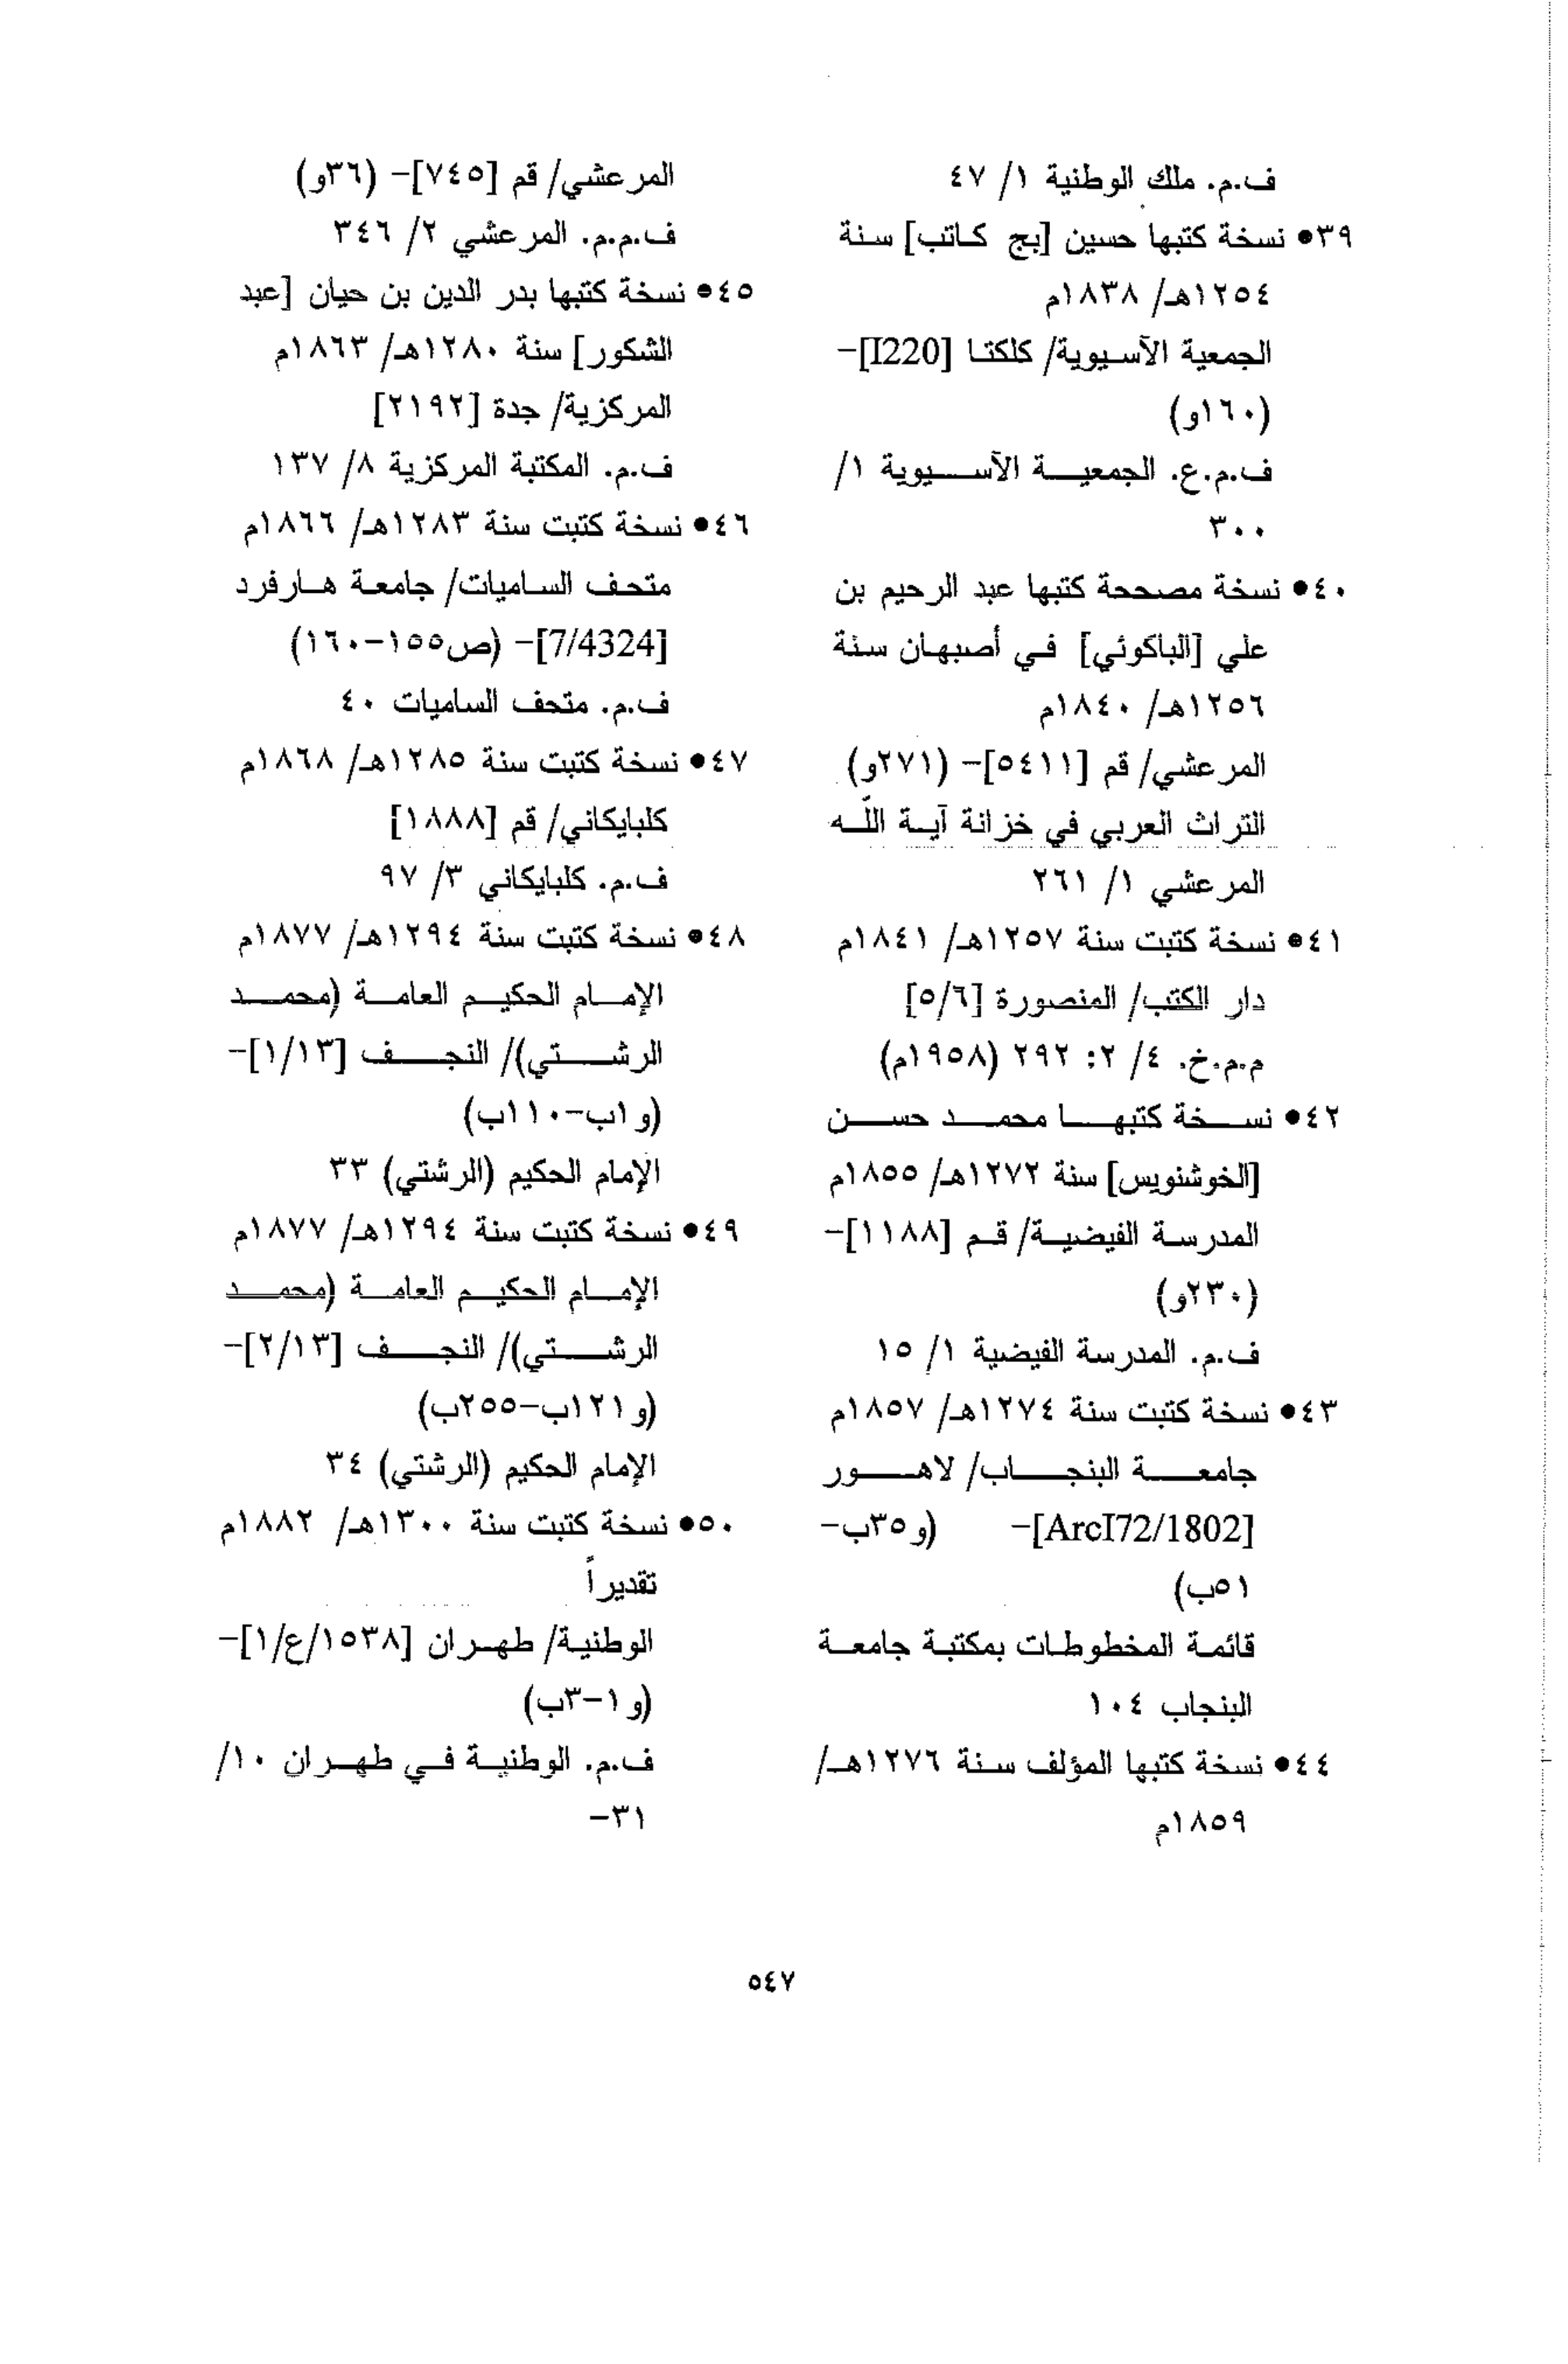 ف.م. ملك الوطنية ١/ ٤٧
٣٩● نسخة كتبها حسين [بج كاتب] سنة
١٢٥٤هـ/ ١٨٣٨م
الجمعية الآسيوية/ كلكتا [I220]-
(١٦٠و)
ف.م.ع. الجمعية الآسيوية ١/
٣٠٠
٤٠● نسخة مصححة كتبها عبد الرحيم بن
علي [الباكوئي] في أصبهان سنة
١٢٥٦هـ/ ١٨٤٠م
المرعشي/ قم [٥٤١١]- (٢٧١و)
التراث العربي في خزانة آية اللّه
المرعشي ١/ ٢٦١
٤١● نسخة كتبت سنة ١٢٥٧هـ/ ١٨٤١م
دار الكتب/ المنصورة [٥/٦]
م.م.خ. ٤/ ٢: ٢٩٢ (١٩٥٨م)
٤٢● نسخة كتبها محمد حسن
[الخوشنويس] سنة ١٢٧٢هـ/ ١٨٥٥م
المدرسة الفيضية/ قم [١١٨٨]-
(٢٣٠و)
ف.م. المدرسة الفيضية ١/ ١٥
٤٣● نسخة كتبت سنة ١٢٧٤هـ/ ١٨٥٧م
جامعة البنجاب/ لاهور
[ArcI72/1802]- (و٣٥ب-
٥١ب)
قائمة المخطوطات بمكتبة جامعة
البنجاب ١٠٤
٤٤● نسخة كتبها المؤلف سنة ١٢٧٦هـ/
١٨٥٩م
المرعشي/ قم [٧٤٥]- (٣٦و)
ف.م.م. المرعشي ٢/ ٣٤٦
٤٥● نسخة كتبها بدر الدين بن حيان [عبد
الشكور] سنة ١٢٨٠هـ/ ١٨٦٣م
المركزية/ جدة [٢١٩٢]
ف.م. المكتبة المركزية ٨/ ١٣٧
٤٦● نسخة كتبت سنة ١٢٨٣هـ/ ١٨٦٦م
متحف الساميات/ جامعة هارفرد
[7/4324]- (ص١٥٥-١٦٠)
ف.م. متحف الساميات ٤٠
٤٧● نسخة كتبت سنة ١٢٨٥هـ/ ١٨٦٨م
كلبايكاني/ قم [١٨٨٨]
ف.م. كلبايكاني ٣/ ٩٧
٤٨● نسخة كتبت سنة ١٢٩٤هـ/ ١٨٧٧م
الإمام الحكيم العامة (محمد
الرشتي)/ النجف [١/١٣]-
(و١ب-١١٠ب)
الإمام الحكيم (الرشتي) ٣٣
٤٩● نسخة كتبت سنة ١٢٩٤هـ/ ١٨٧٧م
الإمام الحكيم العامة (محمد
الرشتي)/ النجف [٢/١٣]-
(و١٢١ب-٢٥٥ب)
الإمام الحكيم (الرشتي) ٣٤
٥٠● نسخة كتبت سنة ١٣٠٠هـ/ ١٨٨٢م
تقديراً
الوطنية/ طهران [١٥٣٨/ع/١]-
(و١-٣ب)
ف.م. الوطنية في طهران ١٠/
٣١-
٥٤٧